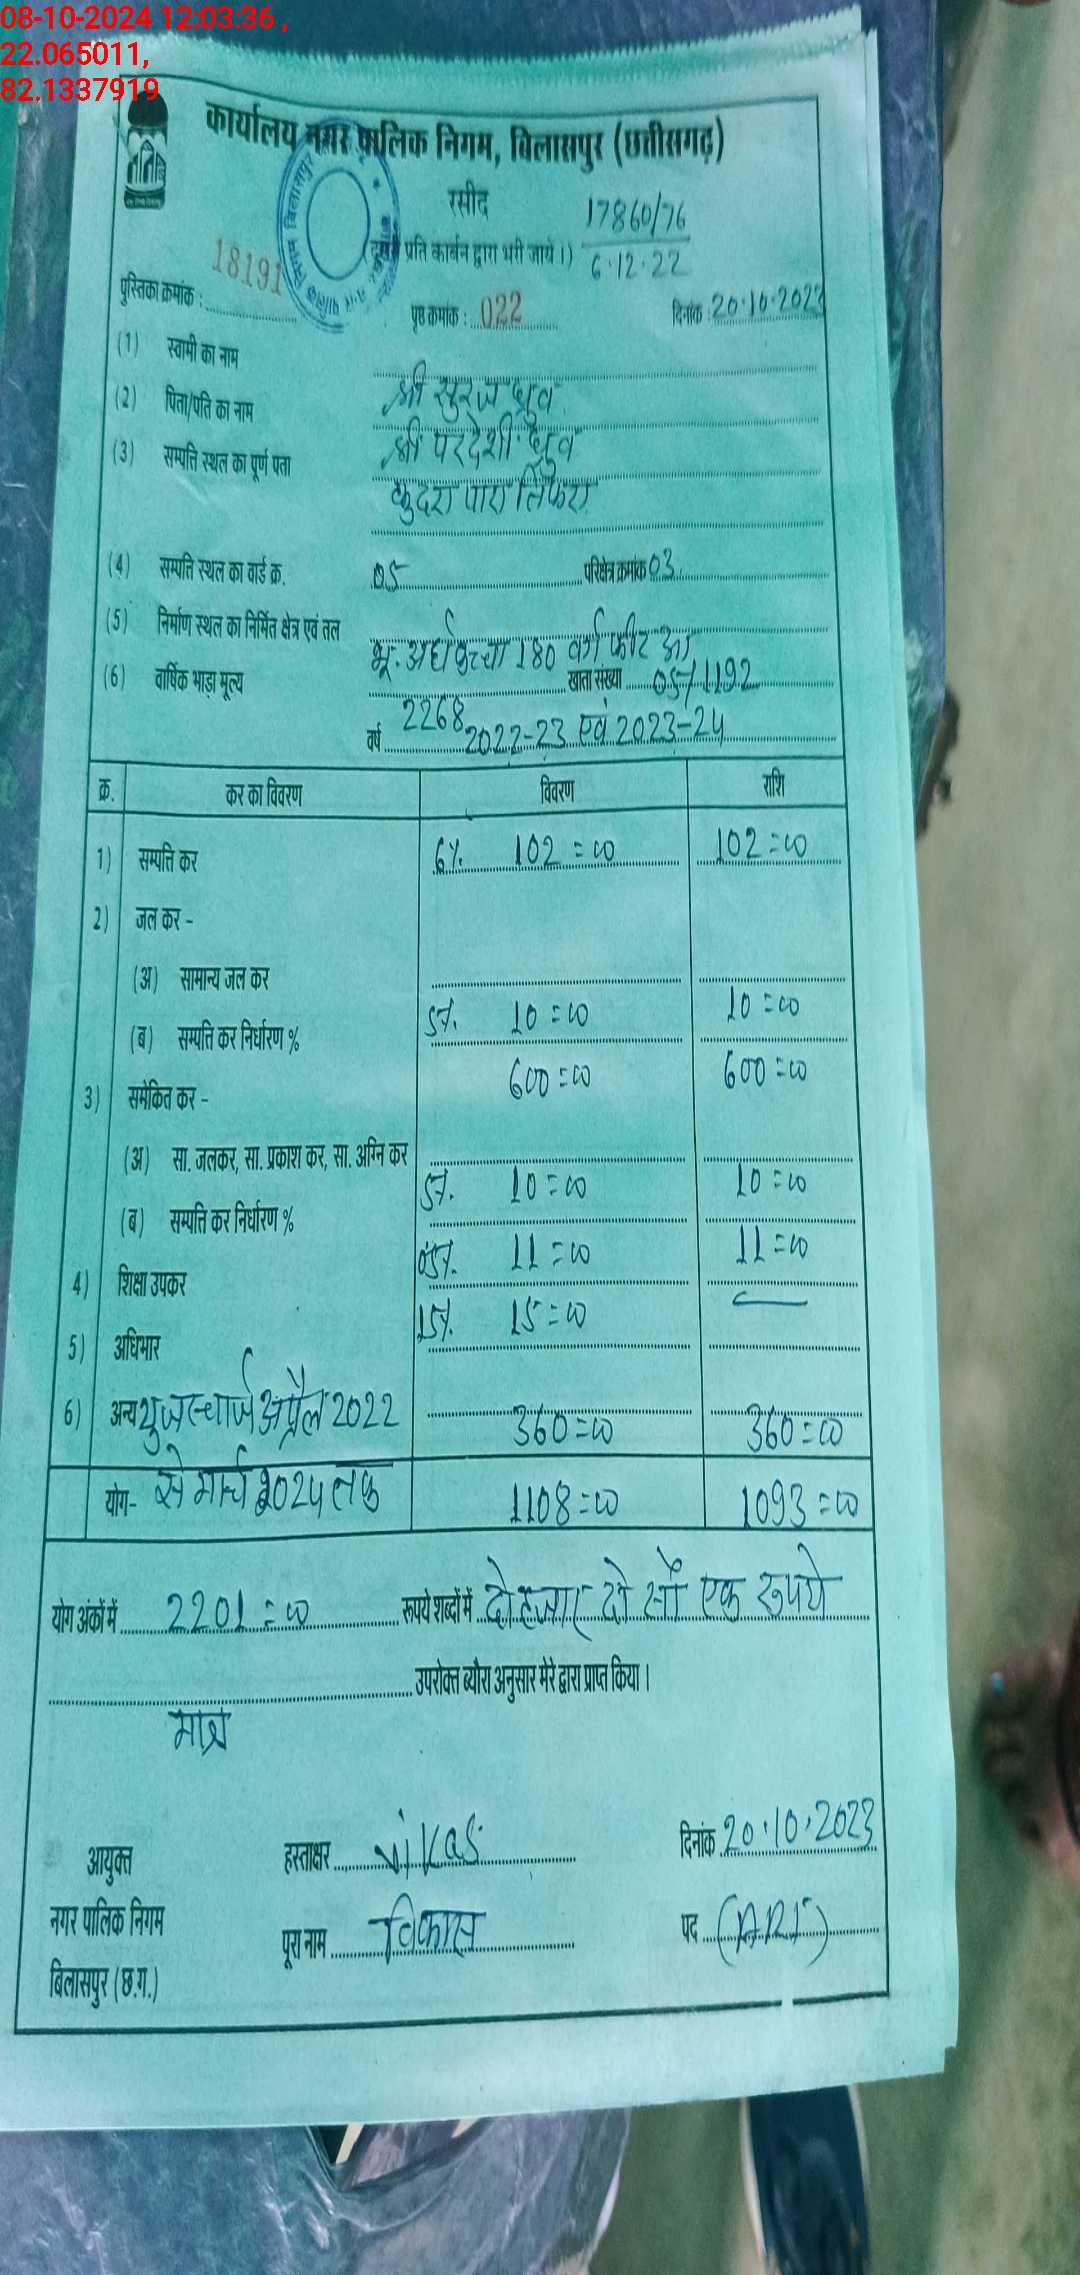 08-10-2024 12:03:36 ,
22.065011,
82.1337919
कार्यालय नगर पालिक निगम, बिलासपुर (छत्तीसगढ़)
रसीद
17860/76
6.12.22
प्रति कार्बन द्वारा भरी जाये।)
पुस्तिका क्रमांक : 18191
पृष्ठ क्रमांक : 022
दिनांक : 20.10.2023
(1) स्वामी का नाम श्री सुरज ध्रुव
(2) पिता/पति का नाम श्री परदेशी ध्रुव
(3) सम्पत्ति स्थल का पूर्ण पता कुदरा पारा तिफरा
(4) सम्पत्ति स्थल का वार्ड क्र. 05 परिक्षेत्र क्रमांक 03
(5) निर्माण स्थल का निर्मित क्षेत्र एवं तल भू. अर्धकच्चा 180 वर्ग फीट आ
(6) वार्षिक भाड़ा मूल्य 2268 खाता संख्या 05/1192
वर्ष 2022-23 एवं 2023-24
क्र. कर का विवरण विवरण राशि
1) सम्पत्ति कर 6% 102=00 102=00
2) जल कर -
(अ) सामान्य जल कर
(ब) सम्पत्ति कर निर्धारण % 5%. 10=00 10=00
3) समेकित कर - 600=00 600=00
(अ) सा. जलकर, सा. प्रकाश कर, सा. अग्नि कर
(ब) सम्पत्ति कर निर्धारण % 5%. 10=00 10=00
4) शिक्षा उपकर 05%. 11=00 11=00
5) अधिभार 15%. 15=00 —
6) अन्य युजरचार्ज अप्रैल 2022 360=00 360=00
योग- से मार्च 2024 तक 1108=00 1093=00
योग अंकों में 2201=00 रूपये शब्दों में दो हजार दो सौ एक रुपये
उपरोक्त ब्यौरा अनुसार मेरे द्वारा प्राप्त किया।
मात्र
आयुक्त हस्ताक्षर vikas दिनांक 20.10.2023
नगर पालिक निगम पूरा नाम विकास पद (ARI)
बिलासपुर (छ.ग.)